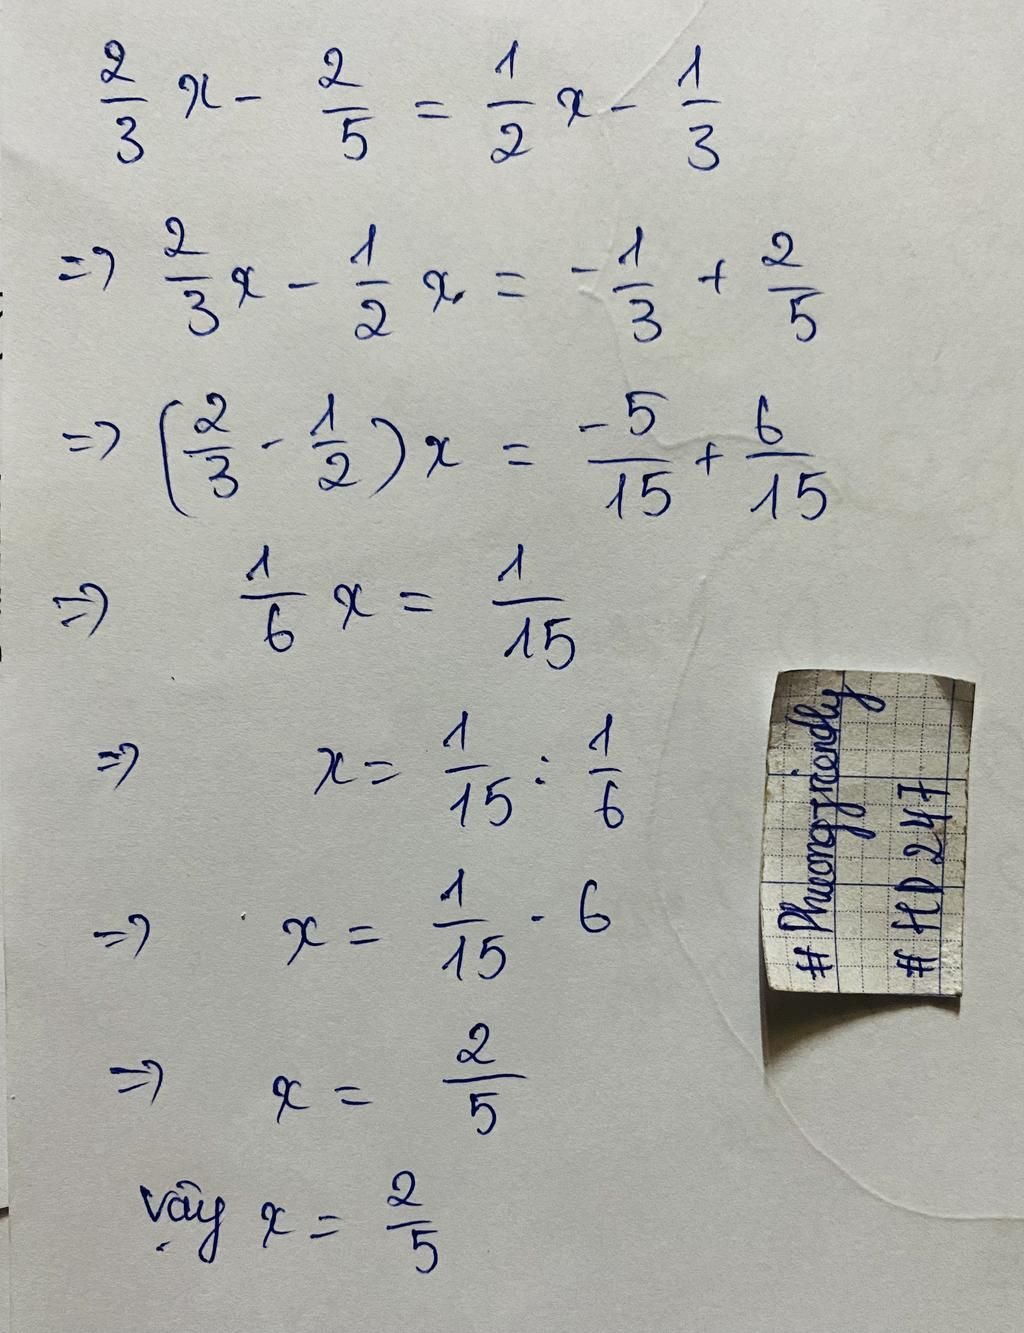 2/3 x - 2/5 = 1/2 x - 1/3
=> 2/3 x - 1/2 x = - 1/3 + 2/5
=> (2/3 - 1/2) x = -5/15 + 6/15
=> 1/6 x = 1/15
=> x = 1/15 : 1/6
=> x = 1/15 . 6
=> x = 2/5
Vậy x = 2/5
#Phuongfriendly
#HD247